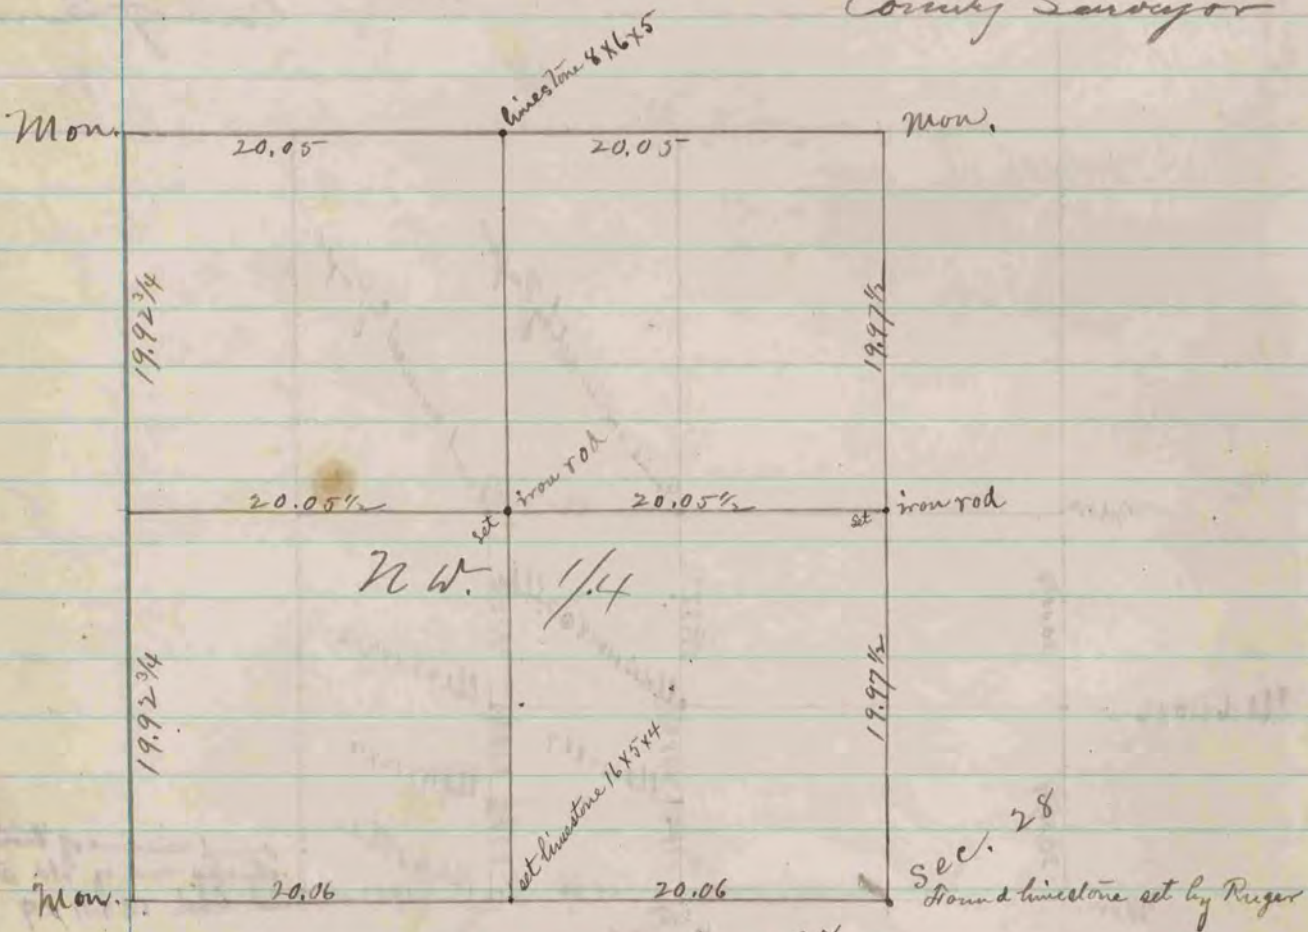 County Surveyor
limestone 8x6x5
Mon.
Mon.
20.05
20.05
19.92 3/4
19.97 1/2
iron rod
20.05 1/2
20.05 1/2
set
set
iron rod
N W. 1/4
19.92 3/4
19.97 1/2
set limestone 16x5x4
Sec. 28
Mon.
20.06
20.06
Found limestone set by Ruger